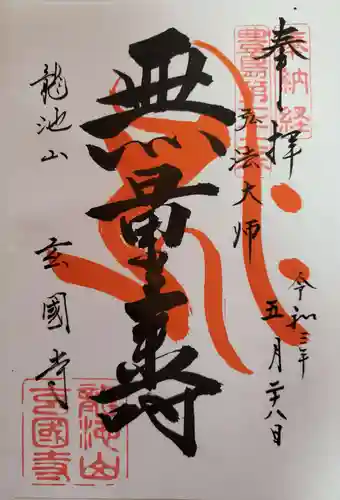 奉拝
奉納経
豊島第
令和三年
五月二十八日
弘法大師
無量寿
龍池山
玄國寺
龍池山
玄國寺